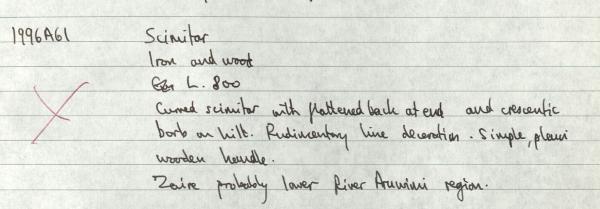 1996A61 Scimitar
Iron and wood
L. 800
Curved scimitar with flattened back at end and crescentic
barb on hilt. Rudimentary line decoration. Simple, plain
wooden handle.
Zaire probably lower River Aruwimi region.